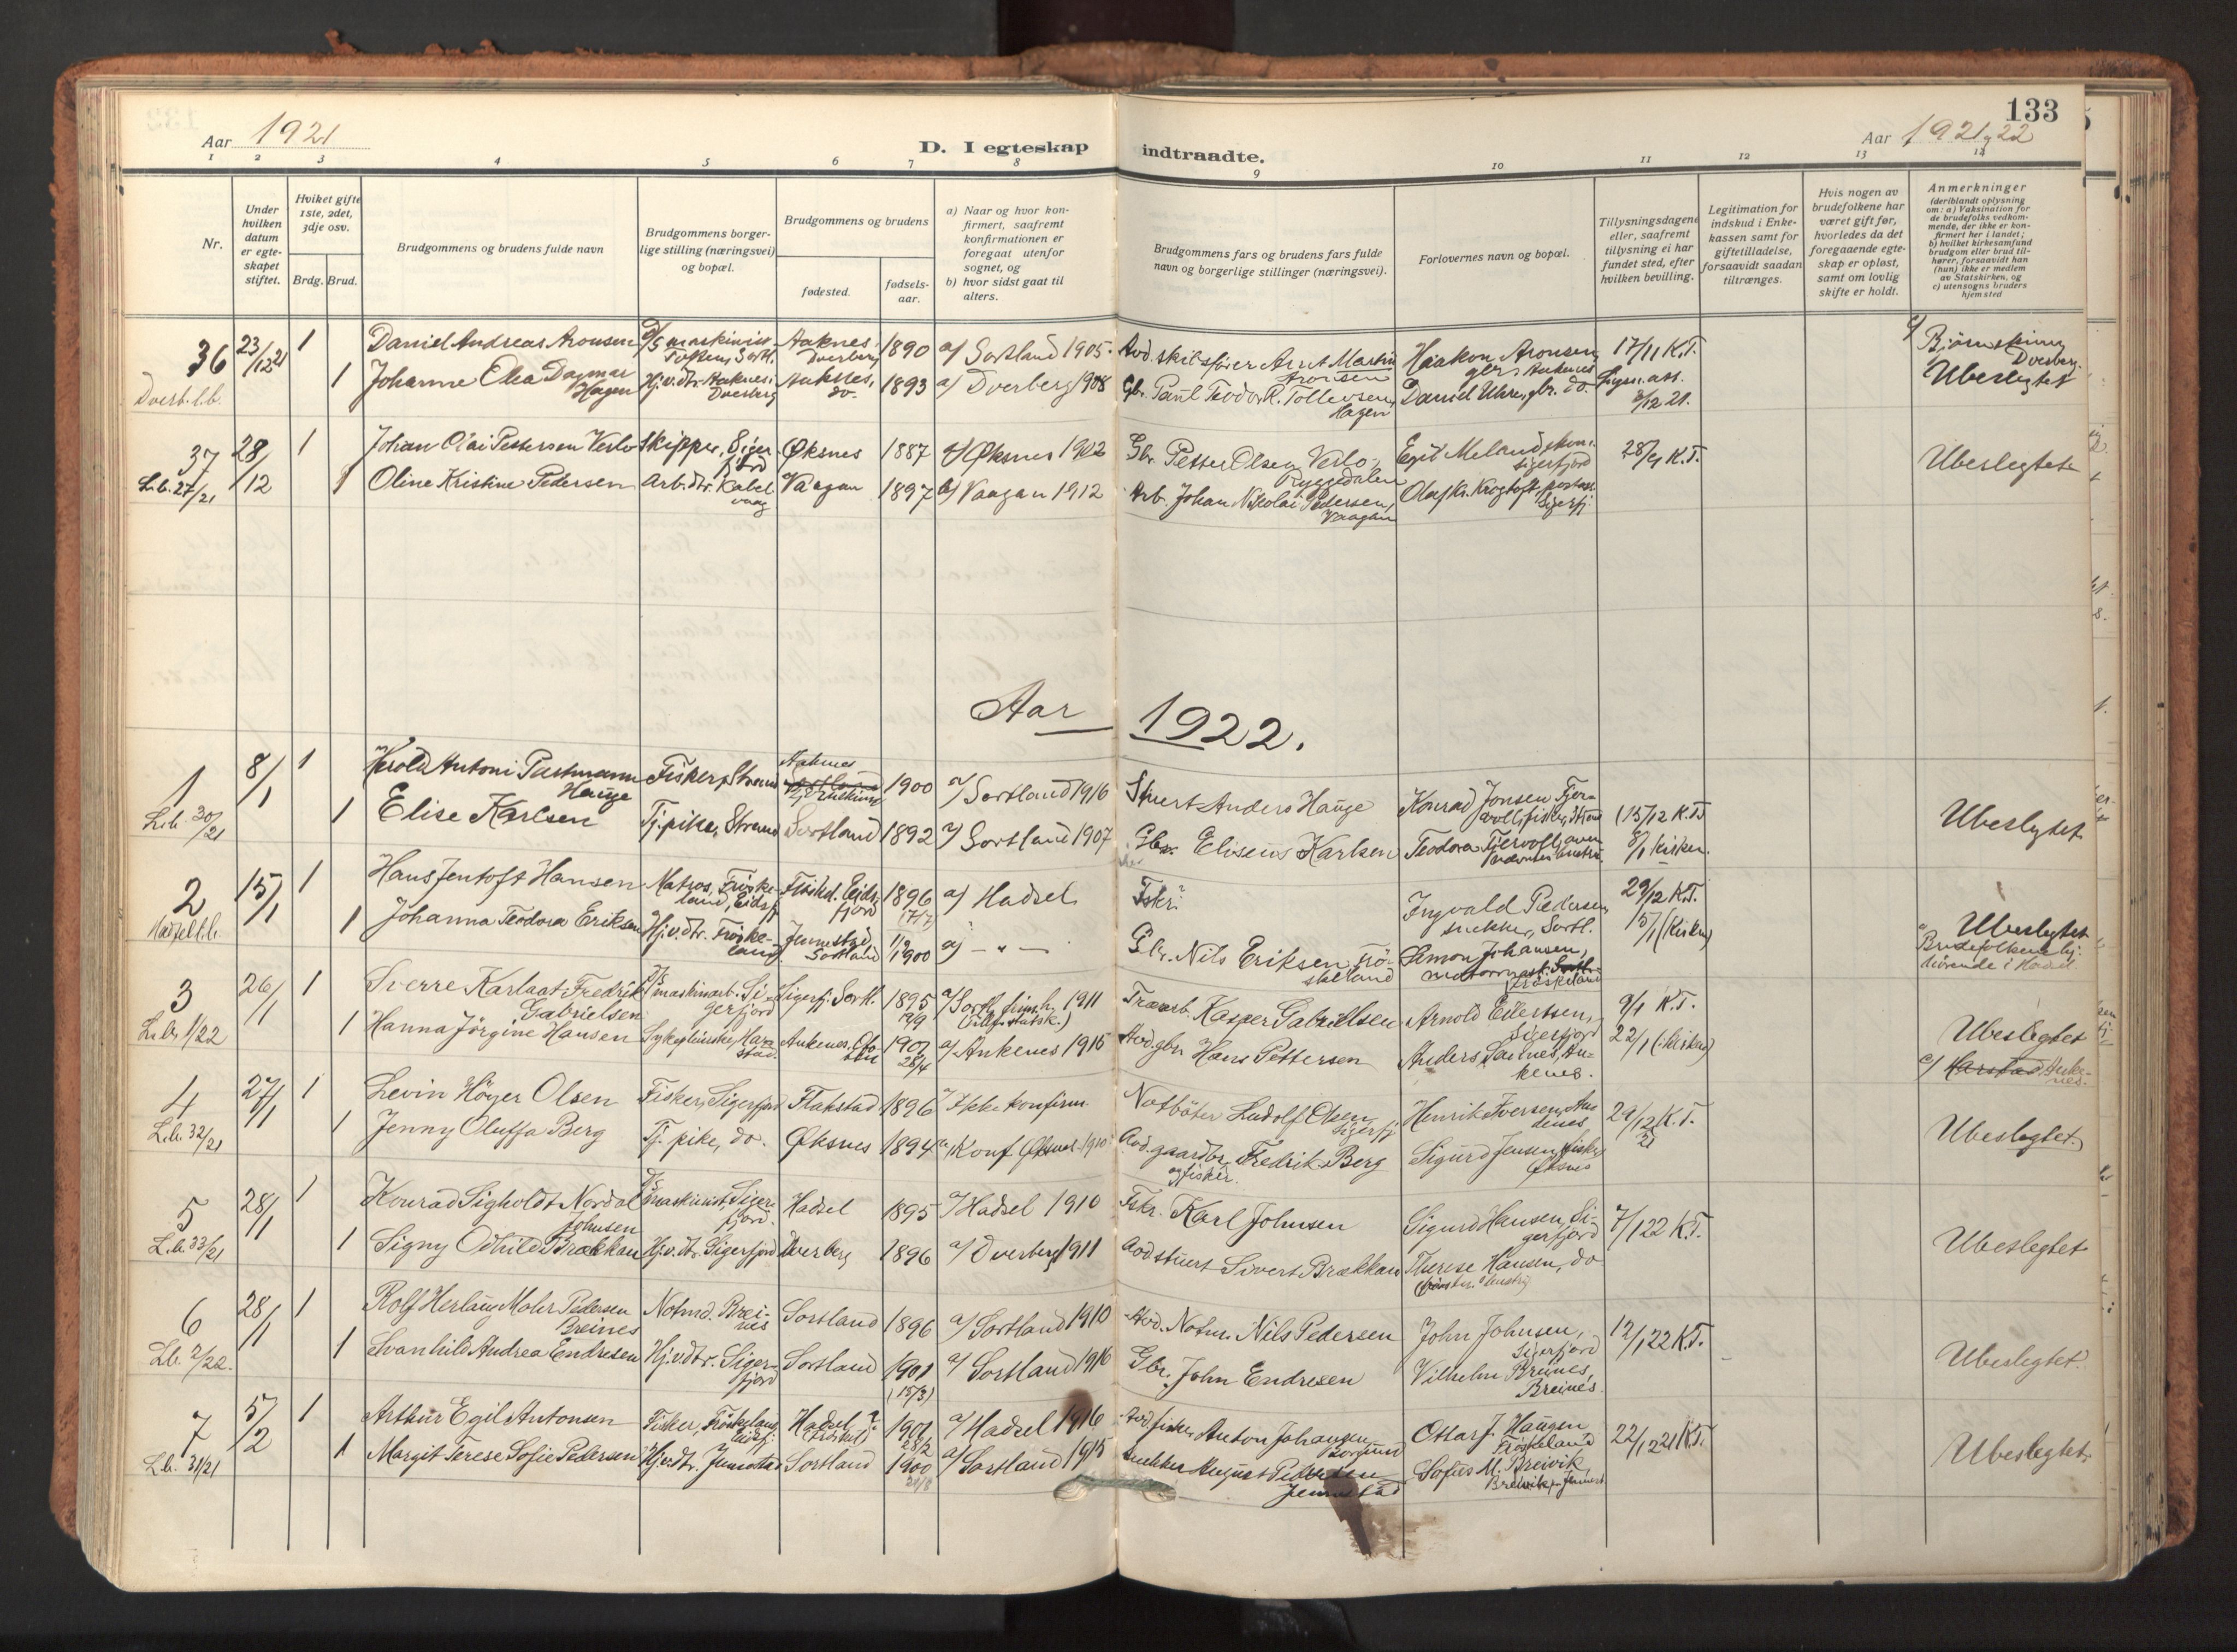 133
Aar 1921
D. I egteskap indtraadte.
Aar 1921, 22
1 2 3 4 5 6 7 8 9 10 11 12 13 14
Nr.
Under hvilken datum er egteskapet stiftet.
Hvilket gifte 1ste, 2det, 3dje osv.
Brdg. Brud.
Brudgommens og brudens fulde navn
Brudgommens borgerlige stilling (næringsvei) og bopæl.
Brudgommens og brudens
fødested.
fødselsaar.
a) Naar og hvor konfirmert, saafremt konfirmationen er foregaat utenfor sognet, og
b) hvor sidst gaat til alters.
Brudgommens fars og brudens fars fulde navn og borgerlige stillinger (næringsvei).
Forlovernes navn og bopæl.
Tillysningsdagene eller, saafremt tillysning ei har fundet sted, efter hvilken bevilling.
Legitimation for indskud i Enkekassen samt for giftetilladelse, forsaavidt saadan tiltrænges.
Hvis nogen av brudefolkene har været gift før, hvorledes da det foregaaende egteskap er opløst, samt om lovlig skifte er holdt.
Anmerkninger (deriblandt oplysning om: a) Vaksination for de brudefolks vedkommende, der ikke er konfirmert her i landet; b) hvilket kirkesamfund brudgom eller brud tilhører, forsaavidt han (hun) ikke er medlem av Statskirken, og c) utensogns bruders hjemsted
36 23/12 21 1 Daniel Andreas Aronsen D/S maskinist Aaknes Dverberg 1890 a/ Sortland 1905. Haakon Aronsen 17/11 K.T. c/ Bjørnskinn Dverberg
Dverb. l.b. 1 Johanne Olea Dagmar Hagen Hj.v.dtr. Aaknes, Dverberg Aaknes, do. 1893 a) Dverberg 1908 Gbr. Paul Teodor R. Tollevsen, Hagen Daniel Uhre, gbr. do. 21. Ubeslegtet
37 28/12 1 Johan Olai Pettersen Verlo Skipper, Sigerfjord Øksnes 1887 a/ Øksnes 1902 Gbr. Petter Olsen Verlo, Ryggedalen Egil Meland Sigerfjord K.T. Ubeslegtet
L.b. 27/21 1 Oline Kristine Pedersen Arb.dtr. Kabelvaag Vaagan 1897 b/ Vaagan 1912 Arb. Johan Nikolai Pedersen, Vaagan Olaf Kr. Krogtoft, Sigerfj.
Aar 1922.
1 8/1 1 Harold Antoni Pastmann Hauge Fisker, Strand Aaknes 1900 a/ Sortland 1916 Stuert Anders Hauge Konrad Jonsen Fjervoll, fisker, Strand (15/12 K.T.) Ubeslegtet
L.b. 30/21 1 Elise Karlsen Tj.pike, Strand Sortland 1892 a/ Sortland 1907 Gbr. Eliseus Karlsen Teodora Fjervoll, 8/1 kirken.
2 15/1 1 Hans Jentoft Hansen Matros, Frøskeland, Eidsfj. Eidsfjord 1896 (7/7) a/ Hadsel Fskr. Ingvald Pedersen snekker, Sortl. 29/12 K.T. 15/1 (kirken) Ubeslegtet
Hadsel l.b. 1 Johanna Teodora Eriksen Hj.v.dtr. Frøskeland Jennestad Sortland 1/9 1900 a) — " — Gbr. Nils Eriksen Frøskeland Simon Johansen, Frøskeland Brudefolkene hjemhørende i Hadsel.
3 26/1 1 Sverre Karlaat Fredrik Gabrielsen maskinarb. Sigerfjord Sigerfj. Sortl. 1895 1911 Kasper Gabrielsen Arnold Eilertsen, Sigerfjord 9/1 K.T. Ubeslegtet
L.b. 1/22 1 Hanna Jörgine Hansen Sykepleierske, Harstad. Ankenes, 1901 28/4 a/ Ankenes 1915 Avd. gbr. Hans Pettersen Anders Ankenes. 22/1 (kirken) c/ Harstad Ankenes.
4 27/1 1 Levin Höyer Olsen Fisker, Sigerfjord Flakstad 1896 Ikke konfirm. Notböter Ludolf Olsen Sigerfj. Henrik Iversen, 29/12 K.T. 21 Ubeslegtet.
L.b. 32/21 1 Jenny Oluffa Berg Tj. pike, do. Øksnes 1894 a/ Konf Øksnes 1910 Avd. gaardbr. Fredrik Berg og fisker. Sigurd Jensen, fisker Øksnes
5 28/1 1 Konrad Sigholdt Nordal Johnsen D/S maskinist, Sigerfjord. Hadsel 1895 a/ Hadsel 1910 Fskr. Karl Johnsen Sigurd Hansen, Sigerfjord 7/1 22 K.T. Ubeslegtet
L.b. 33/21 1 Signy Odhild Brækkan Hj.v.dtr. Sigerfjord Dverberg 1896 a/ Dverberg 1911 Avd stuert Sivert Brækkan Therese Hansen, do
6 28/1 1 Rolf Herlaug Mohr Pedersen Breines Notmd. Breines Sortland 1896 a/ Sortland 1910 Avd. Notm. Nils Pedersen John Johnsen, Sigerfjord 12/1 22 K.T. Ubeslegtet.
Lb. 2/22. 1 Svanhild Andrea Endresen Hj.v.dtr. Sigerfjord Sortland 1901 (15/3) a/ Sortland 1916 Gbr. John Endresen Vilhelm Breines, Breines.
7 5/2 1 Arthur Egil Antonsen Fisker, Frøskeland Eidsfj. Hadsel 1901 28/2 a/ Hadsel 1916 Avd fisker Anton Johansen Ottar J. Haugen Frøskeland 22/12 21 K.T. Ubeslegtet
L.b. 31/21 1 Margit Terese Sofie Pedersen Hj.v.dtr. Jennestad Sortland 1900 21/8 a/ Sortland 1915 Snekker August Pedersen Jennestad Sofus M. Breivik